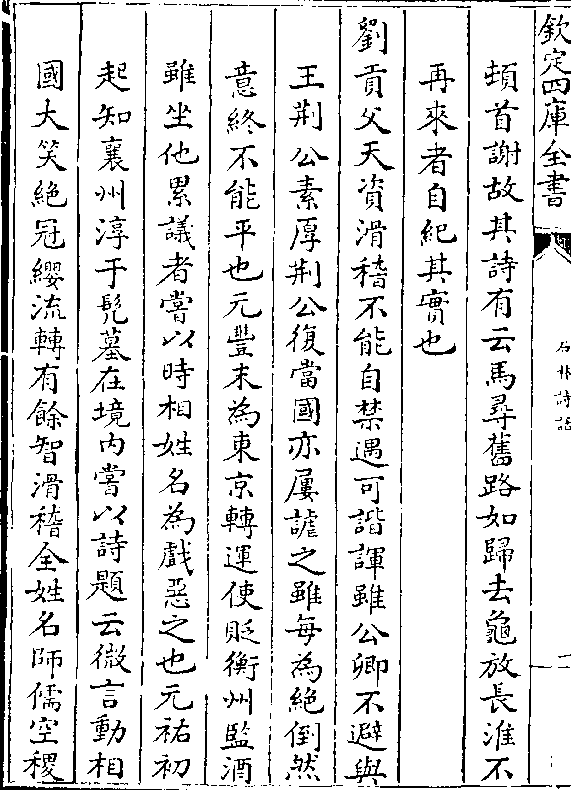 欽定四庫全書
石林詩話
頓首謝故其詩有云馬尋舊路如歸去龜放長淮不
再來者自紀其實也
劉貢父天資滑稽不能自禁遇可諧諢雖公卿不避與
王荆公素厚荆公復當國亦屢謔之雖每為絶倒然
意終不能平也元豐末為東京轉運使貶衡州監酒
雖坐他累議者嘗以時相姓名為戲惡之也元祐初
起知襄州淳于髠墓在境内嘗以詩題云微言動相
國大笑絶冠纓流轉有餘智滑稽全姓名師儒空稷